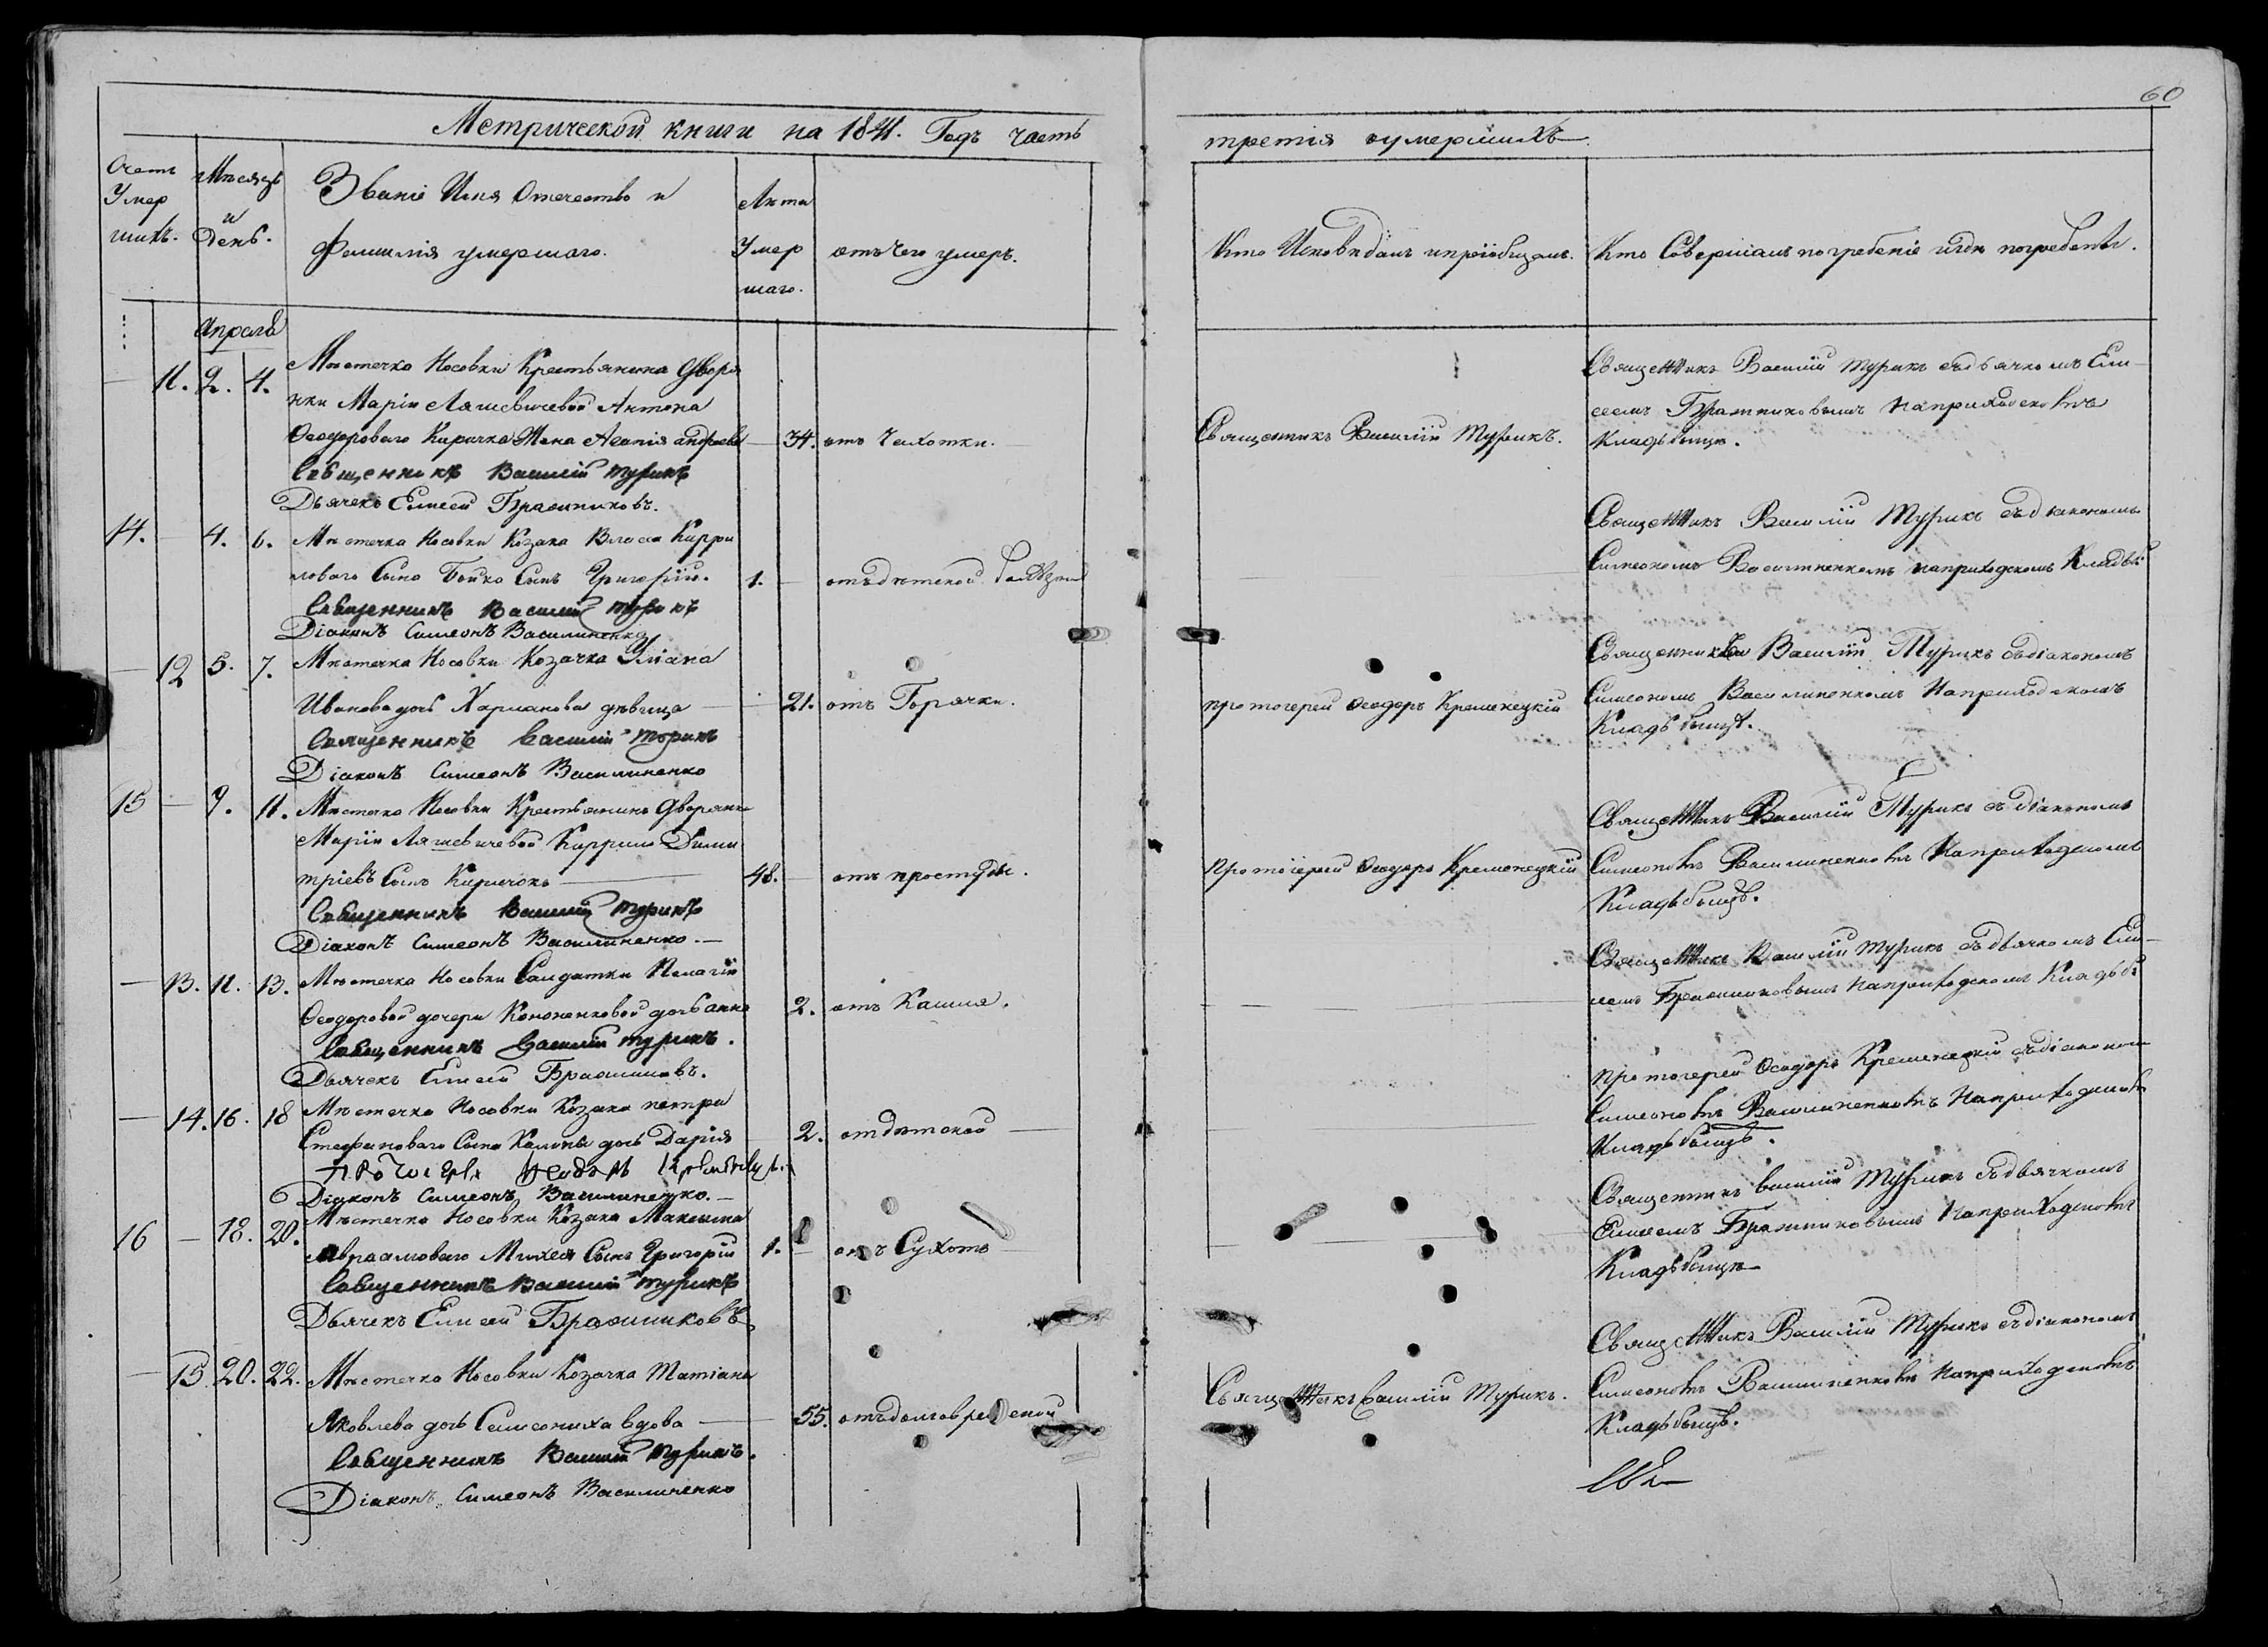 60
Метрической книги на 1841. Годъ часть третія оумершихъ
Счетъ Умершихъ.
Мѣсяцъ и День.
Званіе Имя Отечество и
Фамилія умершаго.
Лѣта Умершаго.
отъ Чего умеръ.
Кто Исповѣдалъ и пріобщалъ.
Кто Совершалъ погребеніе и гдѣ погребены.
Апрѣль
— 11. 2. 4. Мѣстечка Носовки Крестьянина Дворя
нки Маріи Ляшевичевой Антона
Ѳеодороваго Киричка Жена Агапія андреева — 34. отъ Чахотки.
Священникъ Василій Турикъ
Дьячекъ Елисей Бражниковъ.
Священникъ Василій Турикъ.
Священникъ Василій Турикъ съ дьячкомъ Ели-
сеемъ Бражниковымъ на приходскомъ
Кладьбищѣ.
14. 4. 6. Мѣстечка Носовки Козака Власа Кирри
лового Сына Бойко Сынъ Григорій. 1. — отъ дѣтской болѣзни
Священникъ Василій Турикъ
Діаконъ Симеонъ Василиненко
Священникъ Василій Турикъ съ діакономъ
Симеономъ Василиненкомъ на приходскомъ Кладьби
— 12 5. 7. Мѣстечка Носовки Козачка Уліана
Иванова дочь Харланова дѣвица — 21. отъ Горячки.
Священникъ Василій Турикъ
Діаконъ Симеонъ Василиненко
протоіерей Ѳеодоръ Кременецкій
Священникъ Василій Турикъ съ діакономъ
Симеономъ Василиненкомъ На приходскомъ
Кладьбищѣ.
15 — 9. 11. Мѣстечка Носовки Крестьянинъ Дворянки
Маріи Ляшевичевой Киррилъ Дими
тріевъ Сынъ Киричокъ — 48. — отъ простуды.
Священникъ Василій Турикъ
Діаконъ Симеонъ Василиненко. —
Протоіерей Ѳеодоръ Кременецкій
Священникъ Василій Турикъ съ діакономъ
Симеономъ Василиненкомъ На приходскомъ
Кладьбищѣ.
— 13. 11. 13. Мѣстечка Носовки Салдатки Пелагіи
Ѳеодоровой дочери Кононенковой дочь анна 2. отъ Кашля.
Священникъ Василій Турикъ.
Дьячекъ Елисей Бражниковъ.
Священникъ Василій Турикъ съ дьячкомъ Ели-
сеемъ Бражниковымъ На приходскомъ Кладьби
— 14. 16. 18 Мѣстечка Носовки Козака петра
Стефановаго Сына дочь Дарія 2. отъ дѣтской —
Протоіерей Ѳеодоръ
Діаконъ Симеонъ Василиненко. —
Протоіерей Ѳеодоръ Кременецкій съ діакономъ
Симеономъ Василиненкомъ На приходскомъ
Кладьбищѣ.
16 — 18. 20. Мѣстечка Носовки Козака Максима
Авраамоваго Михея Сынъ Григорій 1. — отъ Сухотъ
Священникъ Василій Турикъ
Дьячекъ Елисей Бражниковъ
Священникъ Василій Турикъ съ дьячкомъ
Елисеемъ Бражниковымъ На приходскомъ
Кладьбищѣ
— 15 20. 22. Мѣстечка Носовки Козачка Татіана
Яковлева дочь Семсониха вдова — 55. отъ долговременной
Священникъ Василій Турикъ.
Діаконъ Симеонъ Василиненко
Священникъ Василій Турикъ.
Священникъ Василій Турикъ съ діакономъ
Симеономъ Василиненкомъ На приходскомъ
Кладьбищѣ.